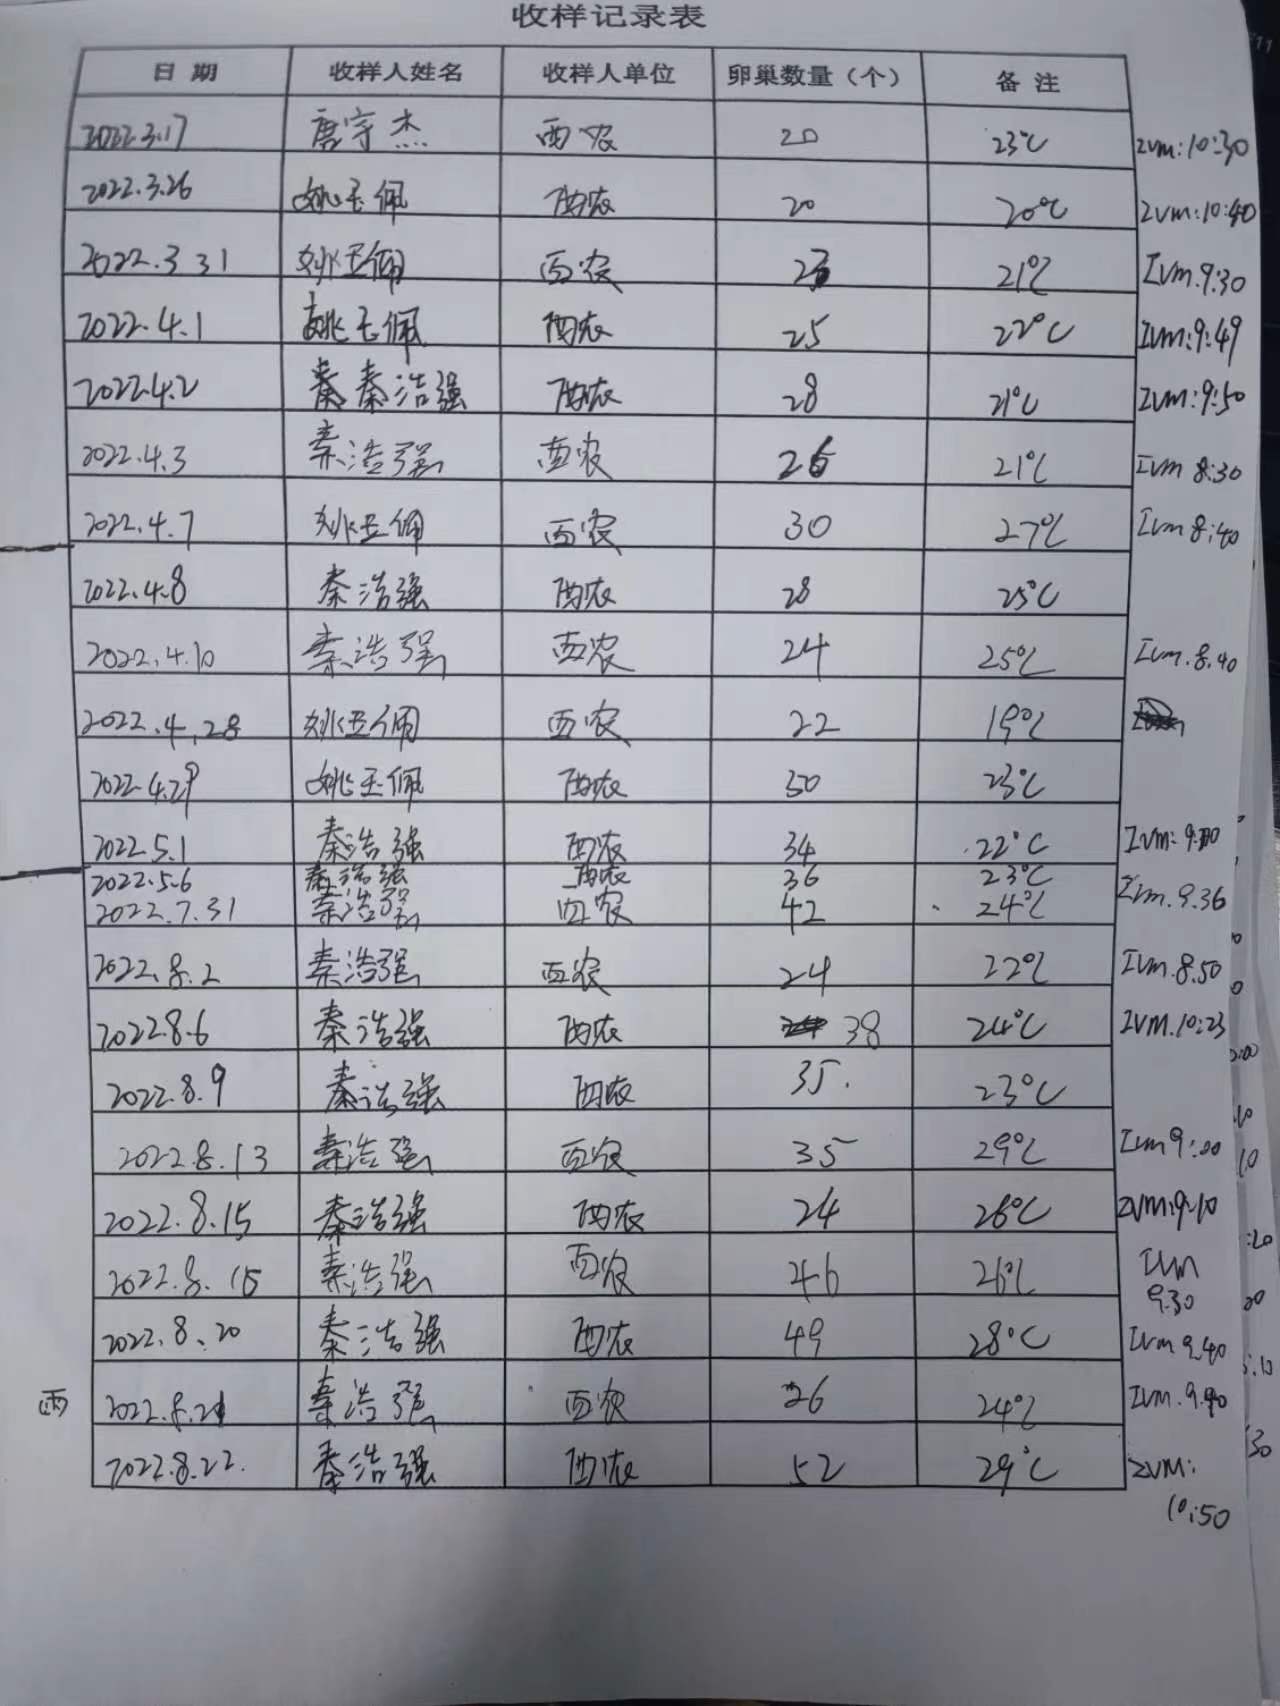 收样记录表
日期 收样人姓名 收样人单位 卵巢数量（个） 备注
2022.3.17 唐宇杰 西农 20 23℃ IVM:10:30
2022.3.26 姚玉佩 西农 20 20℃ IVM:10:40
2022.3 31 姚玉佩 西农 23 21℃ IVM.9:30
2022.4.1 姚玉佩 西农 25 22℃ IVM:9:49
2022.4.2 秦浩强 西农 28 21℃ IVM:9:50
2022.4.3 秦浩强 西农 26 21℃ IVM 8:30
2022.4.7 姚玉佩 西农 30 27℃ IVM 8:40
2022.4.8 秦浩强 西农 28 25℃
2022.4.10 秦浩强 西农 24 25℃ IVM.8.40
2022.4.28 姚玉佩 西农 22 19℃
2022.4.29 姚玉佩 西农 30 23℃
2022.5.1 秦浩强 西农 34 22℃ IVM:9:00
2022.5.6 秦浩强 西农 36 23℃
2022.7.31 秦浩强 西农 42 24℃ IVM.9.36
2022.8.2 秦浩强 西农 24 22℃ IVM.8.50
2022.8.6 秦浩强 西农 38 24℃ IVM.10:23
2022.8.9 秦浩强 西农 35. 23℃
2022.8.13 秦浩强 西农 35 29℃ IVM 9:00
2022.8.15 秦浩强 西农 24 26℃ IVM:9:10
2022.8.15 秦浩强 西农 46 26℃ IVM
9.30
2022.8.20 秦浩强 西农 49 28℃ IVM.9.40
西 2022.8.21 秦浩强 西农 26 24℃ IVM.9.40
2022.8.22. 秦浩强 西农 52 29℃ IVM:
10:50